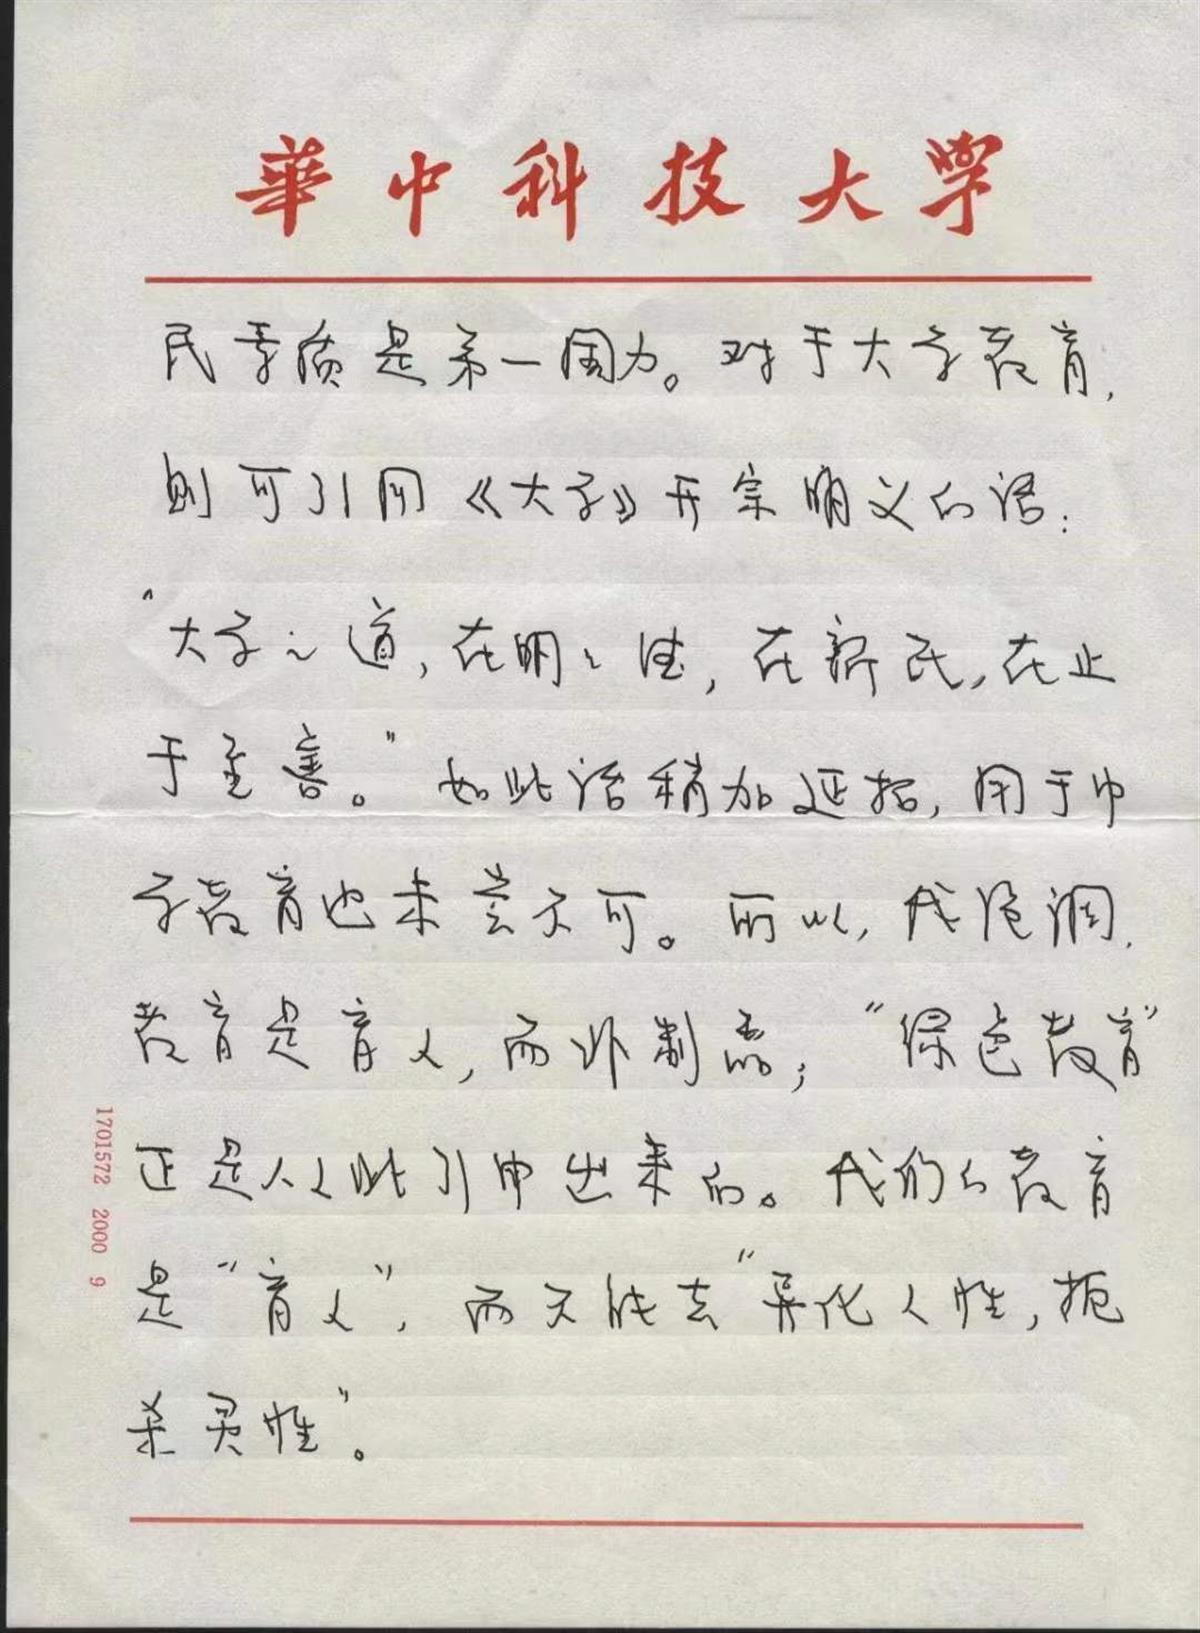 華中科技大学
民素质是第一国力。对于大学教育,
则可引用《大学》开宗明义的语:
“大学之道,在明明德,在新民,在止
于至善。”如此语稍加延拓,用于中
学教育也未尝不可。所以,我强调,
教育是育人,而非制器;“绿色教育”
正是从此引申出来的。我们的教育
是“育人”,而不能去“异化人性,扼
杀灵性”。
1701572 2000 9